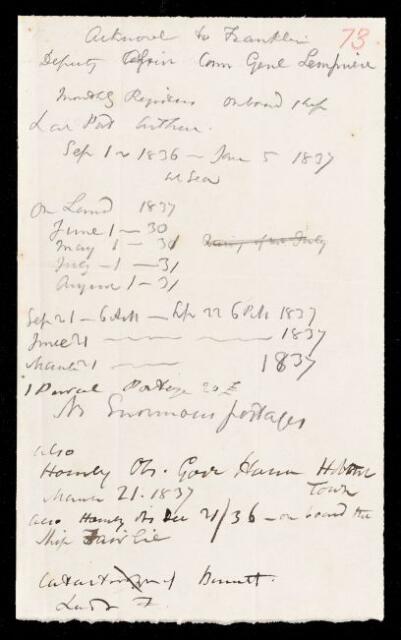 Acknowl to Franklin 73
Deputy Comm Genl Lempriere
Monthly Registers on board ship
Port Arthur.
Sep 1 1836 — Jan 5 1837
at Sea
On Land 1837
June 1 — 30
May 1 — 31
July — 1 — 31
August 1 — 31
Sep 21 — 6 AM — Sep 22 6 PM 1837
June 21 — — — 1837
March 21 — — 1837
1 Parcel Postage 20 £
No Enormous postages
also
Hourly Obs. Govr House Hobart
Town
March 21. 1837
also Hourly Obs Dec 21/36 — on board the
Ship Fairlie
Burnett.
Lady F.